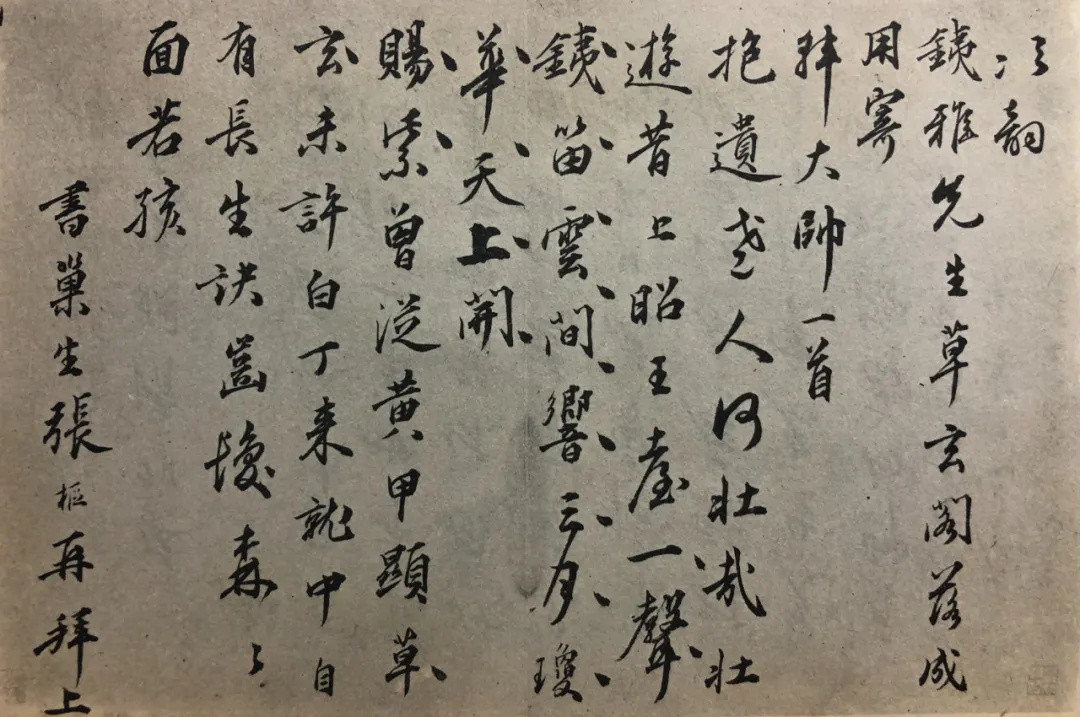 次韵
銕雅先生草玄閣落成
用寄
拜大帥一首
抱遺老人何壯哉壯
遊昔上昭王臺一聲
銕笛雲間響三月瓊
華天上開
賜紫曽從黄甲顯草
玄未許白丁来就中自
有長生訣齒髮森〻
面若孩
書巢生張樞再拜上